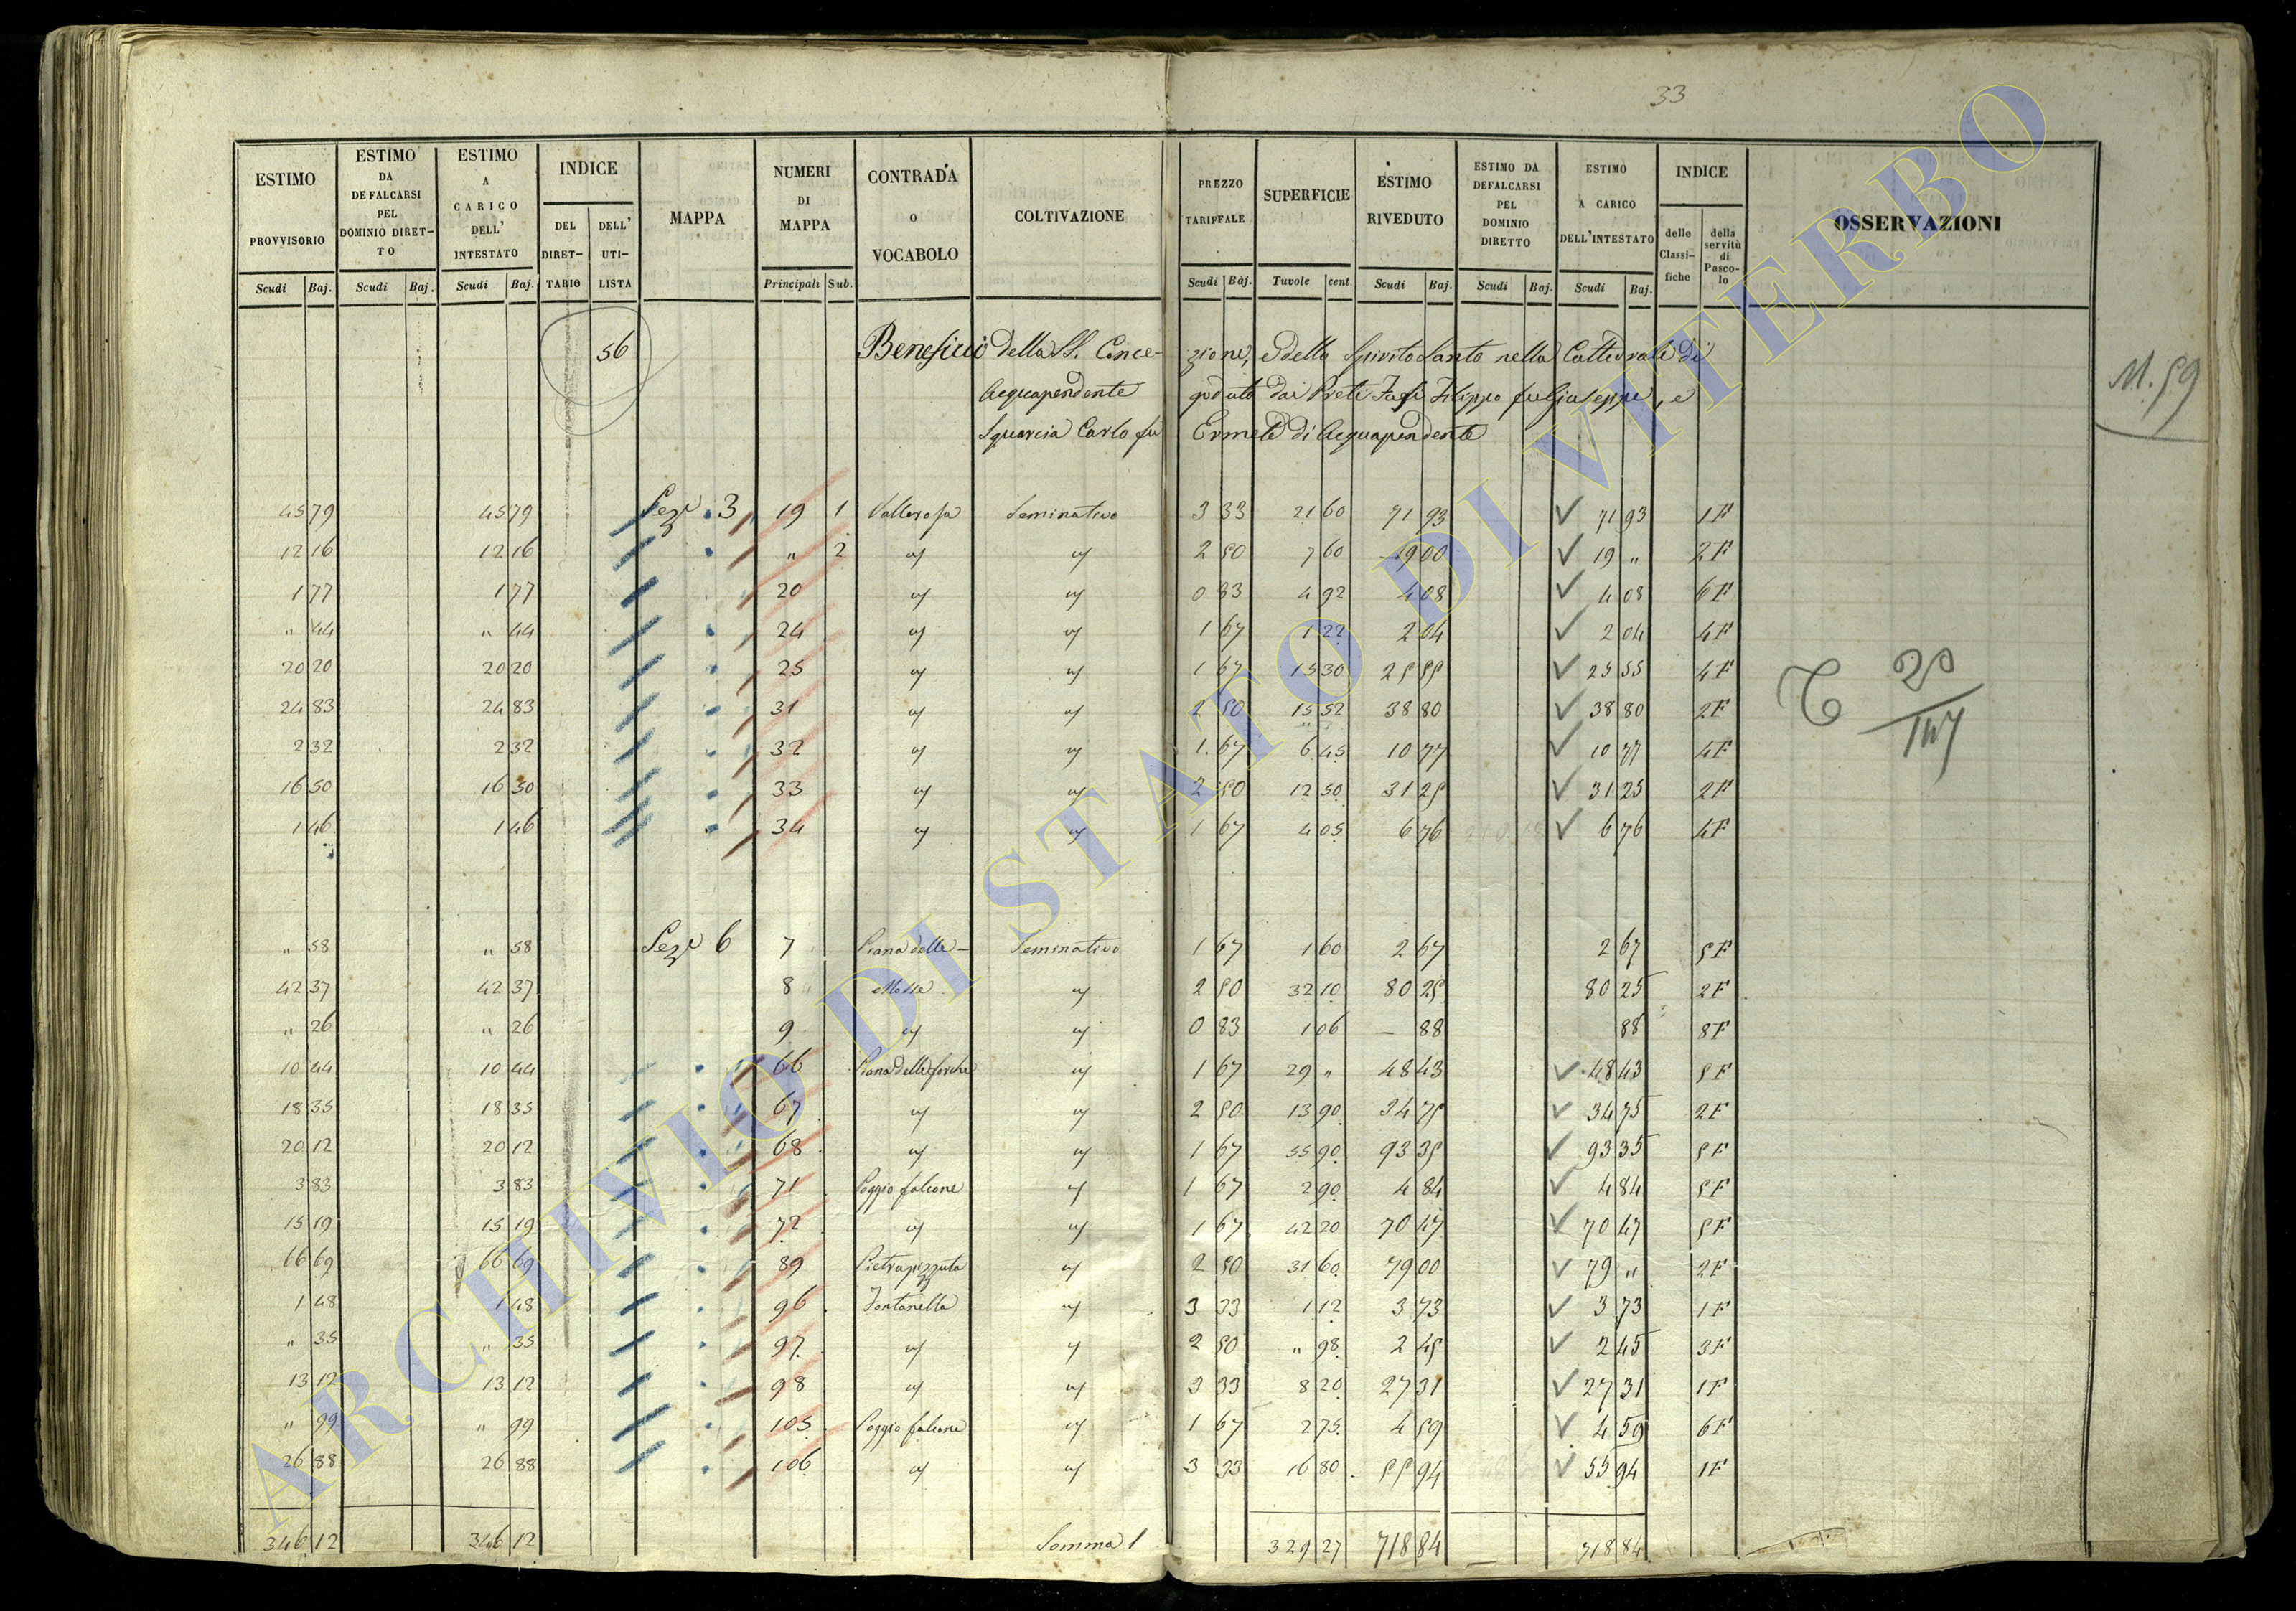 33
ESTIMO PROVVISORIO Scudi Baj. | ESTIMO DA DEFALCARSI PEL DOMINIO DIRET-TO Scudi Baj. | ESTIMO A CARICO DELL' INTESTATO Scudi Baj. | INDICE DEL DIRET-TARIO | DELL' UTI-LISTA | MAPPA | NUMERI DI MAPPA Principali Sub. | CONTRADA O VOCABOLO | COLTIVAZIONE | PREZZO TARIFFALE Scudi Baj. | SUPERFICIE Tavole cent. | ESTIMO RIVEDUTO Scudi Baj. | ESTIMO DA DEFALCARSI PEL DOMINIO DIRETTO Scudi Baj. | ESTIMO A CARICO DELL'INTESTATO Scudi Baj. | INDICE delle Classi-fiche | della servitù di Pasco-lo | OSSERVAZIONI
56 Beneficio della SS. Conce- zione, e dello Spirito Santo nella Cattedrale di
Acquapendente goduto dai Preti Filippo fu Giuseppe, e
Squarcia Carlo fu Ermete di Acquapendente
M. 59
45 79 | 45 79 | Sez.e 3 | 19 | 1 | Vallerosa | Seminativo | 3 33 | 21 60 | 71 93 | ✓ 71 93 | 1F
12 16 | 12 16 | " | 2 | " | " | 2 50 | 7 60 | 19 00 | ✓ 19 " | 2F
1 77 | 1 77 | 20 | " | " | 0 83 | 4 92 | 4 08 | ✓ 4 08 | 6F
" 44 | " 44 | 24 | " | " | 1 67 | 1 22 | 2 04 | ✓ 2 04 | 4F
20 20 | 20 20 | 25 | " | " | 1 67 | 15 30 | 25 55 | ✓ 25 55 | 4F
24 83 | 24 83 | 31 | " | " | 2 50 | 15 52 | 38 80 | ✓ 38 80 | 2F
2 32 | 2 32 | 32 | " | " | 1 67 | 6 45 | 10 77 | ✓ 10 77 | 4F
16 50 | 16 50 | 33 | " | " | 2 50 | 12 50 | 31 25 | ✓ 31 25 | 2F
1 46 | 1 46 | 34 | " | " | 1 67 | 4 05 | 6 76 | ✓ 6 76 | 4F
" 58 | " 58 | Sez.e 6 | 7 | Piana delle- | Seminativo | 1 67 | 1 60 | 2 67 | 2 67 | 5F
42 37 | 42 37 | 8 | " | 2 50 | 32 10 | 80 25 | 80 25 | 2F
" 26 | " 26 | 9 | " | " | 0 83 | 1 06 | — 88 | 88 | 8F
10 44 | 10 44 | 66 | Piana delle forche | " | 1 67 | 29 " | 48 43 | ✓ 48 43 | 5F
18 35 | 18 35 | 67 | " | " | 2 50 | 13 90 | 34 75 | ✓ 34 75 | 2F
20 12 | 20 12 | 68 | " | " | 1 67 | 55 90 | 93 35 | ✓ 93 35 | 5F
3 83 | 3 83 | 71 | Poggio falcone | " | 1 67 | 2 90 | 4 84 | ✓ 4 84 | 5F
15 19 | 15 19 | 72 | " | " | 1 67 | 42 20 | 70 47 | ✓ 70 47 | 5F
66 69 | 66 69 | 89 | Pietrapizzuta | " | 2 50 | 31 60 | 79 00 | ✓ 79 " | 2F
1 48 | 1 48 | 96 | Fontanella | " | 3 33 | 1 12 | 3 73 | ✓ 3 73 | 1F
" 35 | " 35 | 97 | " | " | 2 50 | " 98 | 2 45 | ✓ 2 45 | 3F
13 12 | 13 12 | 98 | " | " | 3 33 | 8 20 | 27 31 | ✓ 27 31 | 1F
" 99 | " 99 | 105 | Poggio falcone | " | 1 67 | 2 75 | 4 59 | ✓ 4 59 | 6F
26 88 | 26 88 | 106 | " | " | 3 33 | 16 80 | 55 94 | ✓ 55 94 | 1F
346 12 | 346 12 | Somma 1 | 329 27 | 718 84 | 718 84
ARCHIVIO DI STATO DI VITERBO